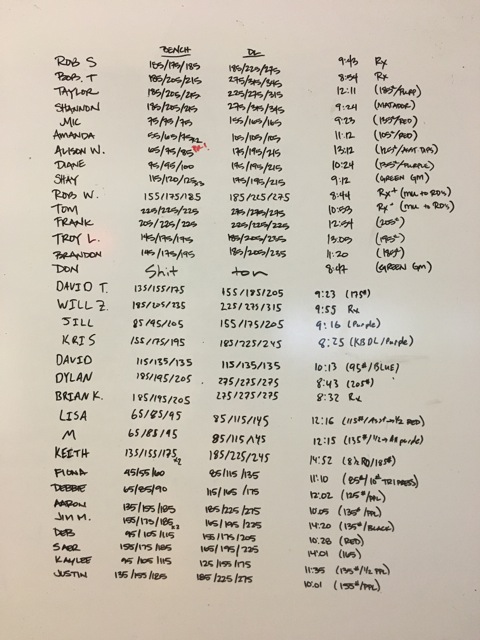 BENCH DL
ROB S 185/175/185 185/225/275 9:43 Rx
BOB. T 185/205/215 275/345/345 8:54 Rx
TAYLOR 185/205/215 225/275/315 12:11 (185#/PURP)
SHANNON 185/205/215 275/345/345 9:24 (MATADOR)
MIC 75/75/75 155/165/165 9:23 (135#/RED)
AMANDA 55/65/75x2 105/105/105 11:12 (105#/RED)
ALISON W. 65/75/85 175/195/215 13:12 (125#/ASST DIPS)
DIANE 95/95/100 195/195/215 10:24 (135#/PURPLE)
SHAY 115/120/125x3 195/195/215 9:12 (GREEN GM)
ROB W. 155/175/185 185/215/275 8:44 Rx+ (MU TO RD'S)
TOM 225/225/225 275/275/275 10:53 Rx+ (MU TO RD'S)
FRANK 205/225/225 225/225/225 12:54 (205#)
TROY L. 145/175/195 185/205/235 13:03 (195#)
BRANDON 145/175/195 185/205/235 11:20 (185#)
DON Shit ton 8:47 (GREEN GM)
DAVID T. 135/155/175 155/185/205 9:23 (175#)
WILL Z. 185/205/235 225/275/315 9:55 Rx
JILL 85/95/105 155/175/205 9:16 (Purple)
KRIS 155/175/195 185/225/245 8:25 (KBDL/Purple)
DAVID 115/135/135 115/135/135 10:13 (95#/BLUE)
DYLAN 185/195/205 275/275/275 8:43 (205#)
BRIAN K. 185/195/205 275/275/275 8:32 Rx
LISA 65/85/95 85/115/145 12:16 (115#/Asst→1/2 RED)
M 65/85/95 85/115/145 12:15 (135#/1/2→AB purple)
KEETH 135/155/175x2 185/225/245 14:52 (8½RD/185#)
FIONA 45/55/60 85/115/135 11:10 (85#/10# TRI PRESS)
DEBBIE 65/85/90 115/165/175 12:02 (125#/PPL)
AARON 135/155/185 185/225/275 10:05 (135#/PPL)
JIM M. 155/175/185x2 165/195/225 14:20 (135#/BLACK)
DEB 95/105/115 155/175/205 10:28 (RED)
SAER 155/175/185 165/195/225 14:01 (165)
KAYLEE 95/105/115 125/155/175 11:35 (135#/1/2 PPL)
JUSTIN 135/155/185 185/225/275 10:01 (155#/PPL)